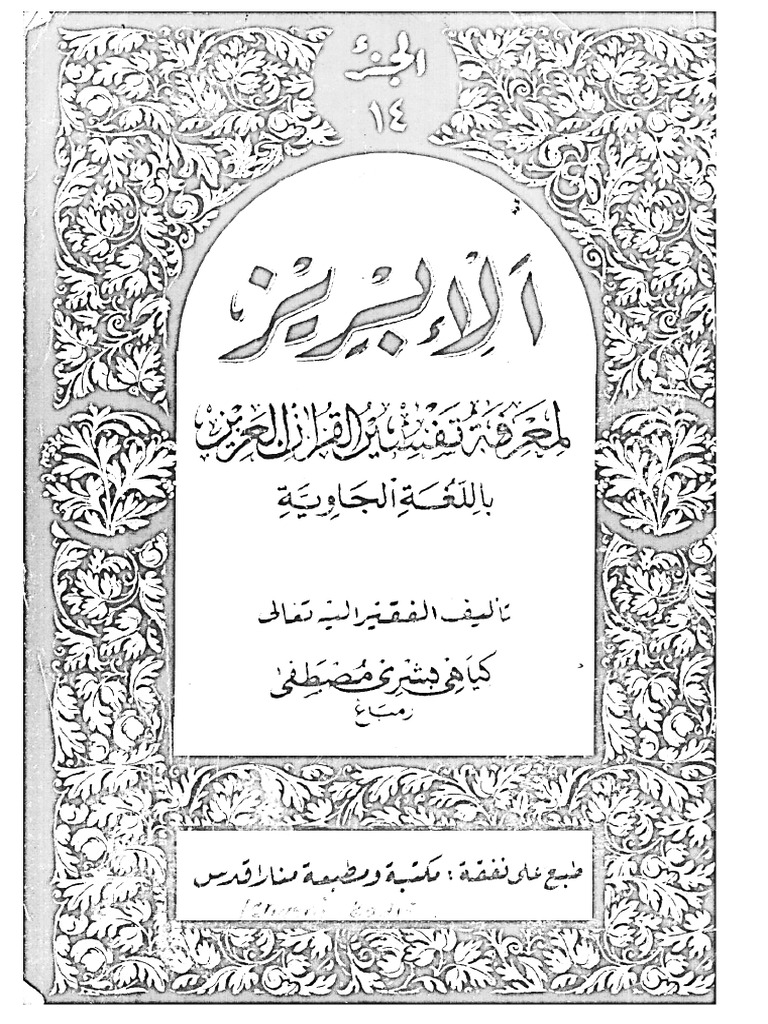 الجزء
١٤
اَلْإِبْرِيْز
لمَعْرِفَةِ تَفْسِيْرِ القُرْآنِ العَزِيْز
بِاللّغَةِ الْجَاوِيَّةِ
تأليف الفقير اليه تعالى
كياهى بشرى مُصْطَفى
رمباغ
طبع على نفقة : مكتبة ومطبعة منارا قدس